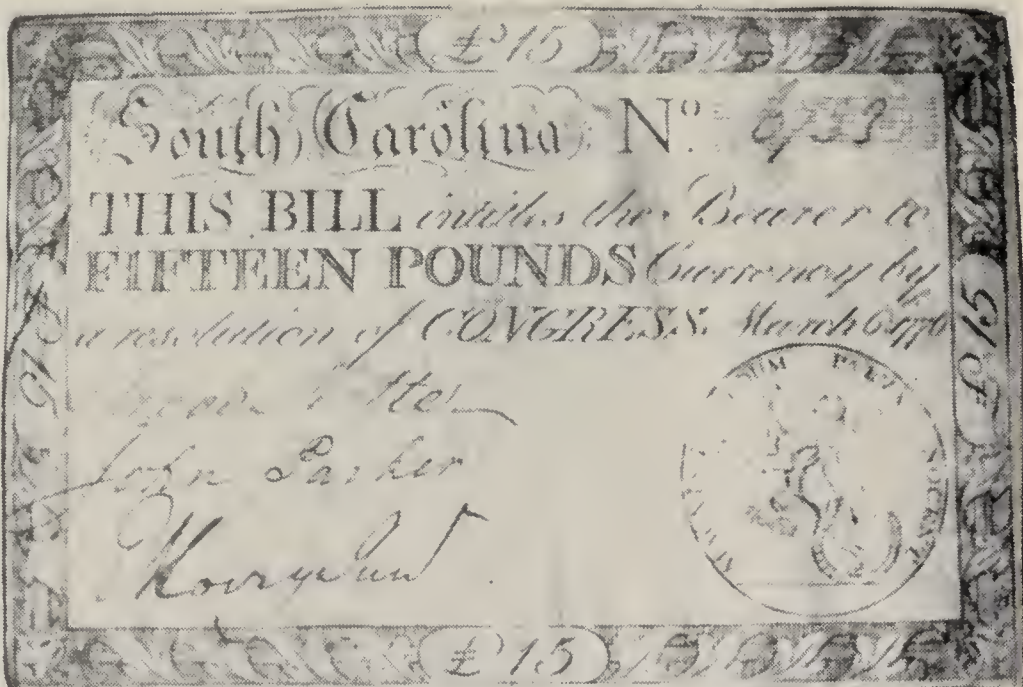 £15
South Carolina Nº.
THIS BILL entitles the Bearer to
FIFTEEN POUNDS Currency by
a resolution of CONGRESS. March 6. 1776
£15
£15
DUM
John Parker
£15